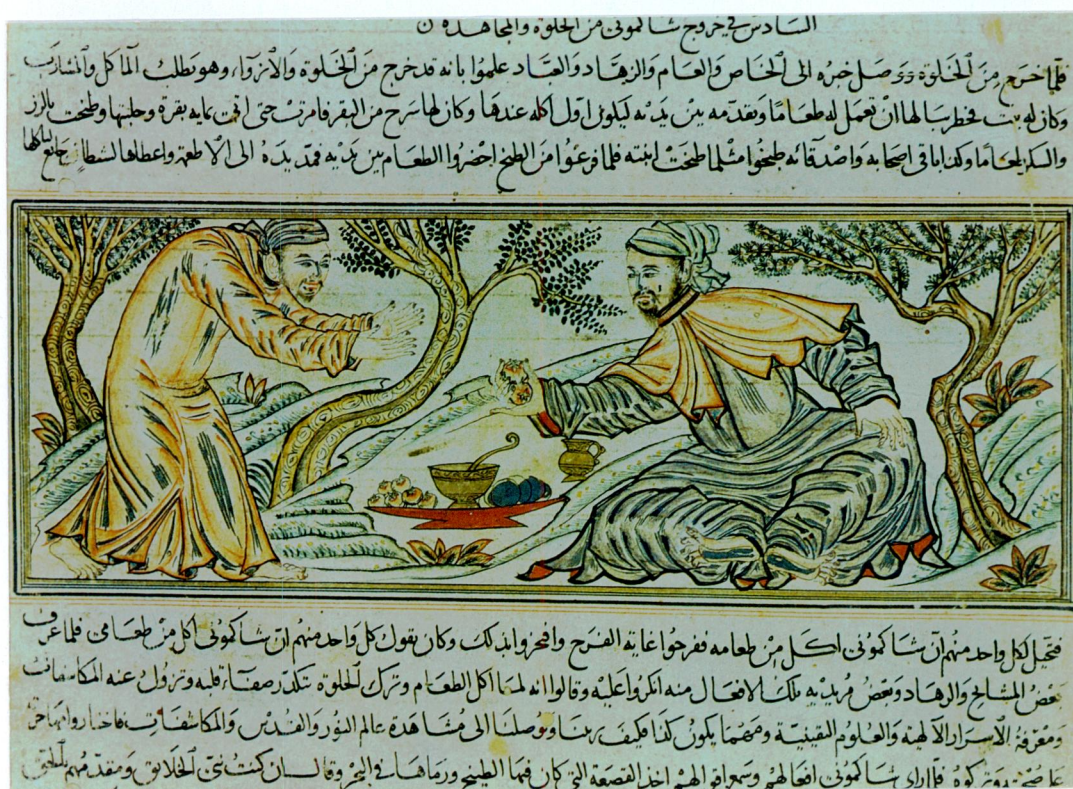 السادس في خروج شاكموني من الخلوة والمجاهدة ن
فلما خرج من الخلوة ووصل خبره الى الخاص والعام والزهاد والعباد علموا بانه قد خرج من الخلوة والانزواء وهو يطلب المآكل والمشارب
وكان له بنت فخطر ببالها ان تعمل له طعاما وتقدمه بين يديه ليكون اول اكله عندها وكان لها سرح من البقر فامرت حتى بمايه بقرة وحلبتها وطبخت بالرز
والسكر طعاما وكذا باقي اصحابه واصدقائه طبخوا مثلما طبخت ابنته فلما فرغوا من الطبخ احضروا الطعام بين يديه فمد يده الى الاطعمة واعطاها الشطان
فتخيل لكل واحد منهم ان شاكموني اكل من طعامه ففرحوا غاية الفرح وافتخروا بذلك وكان يقول كل واحد منهم ان شاكموني اكل من طعامى فلما عرف
بعض المشايخ والزهاد وبعض مريديه تلك الافعال منه انكروا عليه وقالوا انه لما اكل الطعام وترك الخلوة تكدر صفاء قلبه وتزول عنه المكاشفات
ومعرفة الاسرار الالهية والعلوم اليقينية ومهما يكون كذا فكيف يربينا ويوصلنا الى مشاهدة عالم النور والقدس والمكاشفات فاختاروا
وتركوه فلما راى شاكموني افعالهم وسمع اقوالهم اخذ القصعة التي كان فيها الطبيخ ورماها في البحر وقال ان كنت نبي الخلايق ومقدمهم